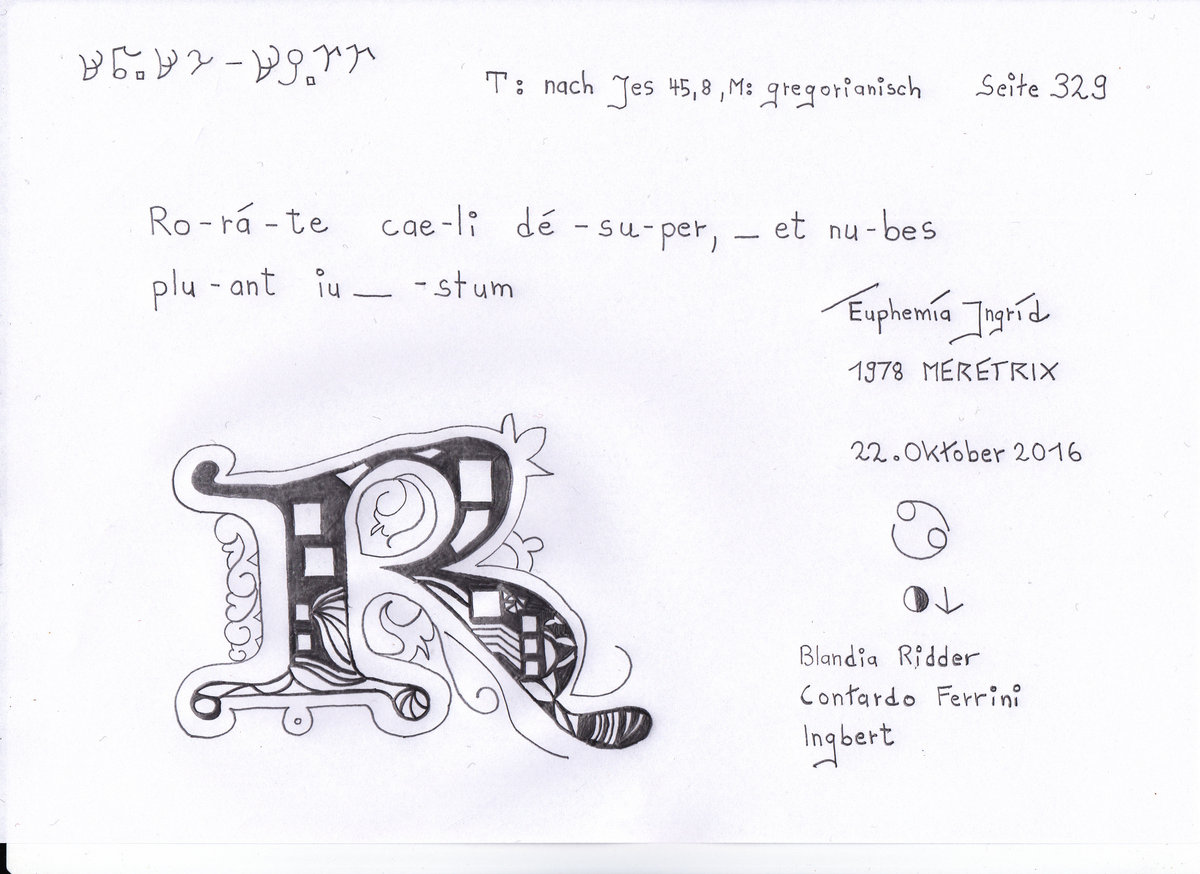 T: nach Jes 45,8, M: gregorianisch Seite 329
Ro-rá-te cae-li dé-su-per, _ et nu-bes
plu-ant iu _ -stum
Euphemía Jngríd
1978 MÉRÉTRIX
22. Oktober 2016
Blandia Ridder
Contardo Ferrini
Ingbert